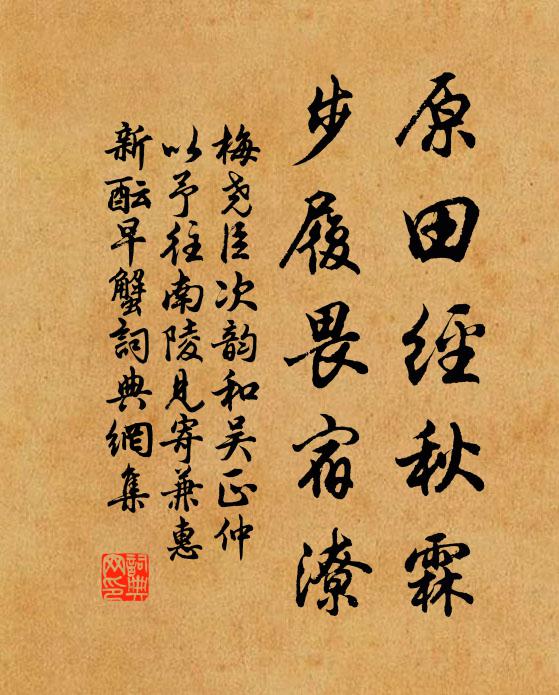 原田經秋霖
步履畏宿潦
梅堯臣次韵和吴正仲
以予往南陵見寄兼惠
新酝早蟹詞典網集
詞典网印